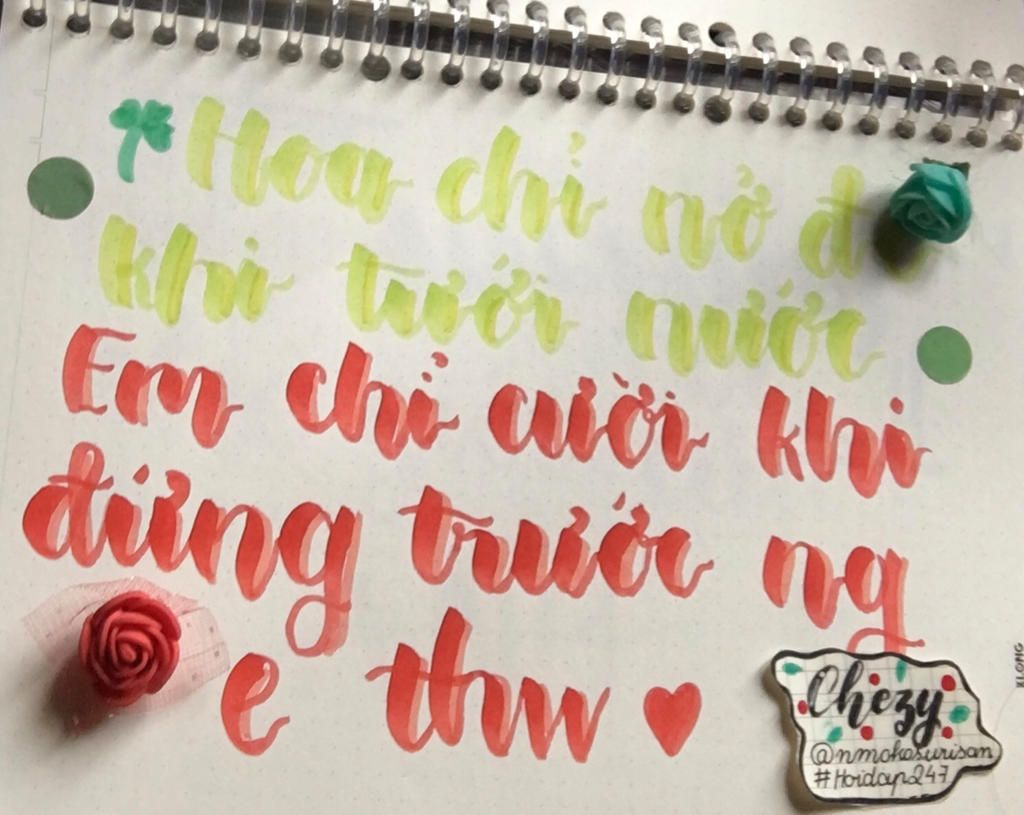 Hoa chỉ nở đ
khi tưới nước
Em chỉ cười khi
đứng trước ng
e thw
Chezy
@nmokasurisan
#Hoidap247
KLONG